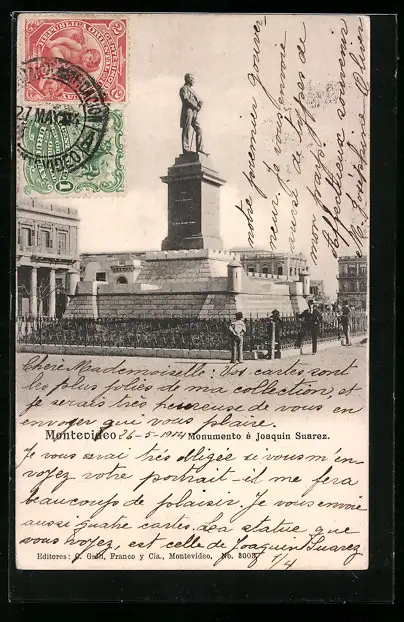 2 REPUBLICA ORIENTAL 2
27 MAY
MONTEVIDEO
1
notre premier gouver
neur, je vous envoie
aussi de types de
mon pays.
Affectueux souvenir
M. Josephine
Chère Mademoiselle: Vos cartes sont
les plus jolies de ma collection, et
je serais très heureuse de vous en
envoyer que vous plaire.
Montevideo 26-5-1904 Monumento é Joaquin Suarez.
Je vous serai très obligée si vous m'en-
voyez votre portrait - il me fera
beaucoup de plaisir. Je vous envoie
aussi quatre cartes. La statue que
vous voyez, est celle de Joaquin Suarez
Editores: C. Galli, Franco y Cia., Montevideo, No. 3005
1/4